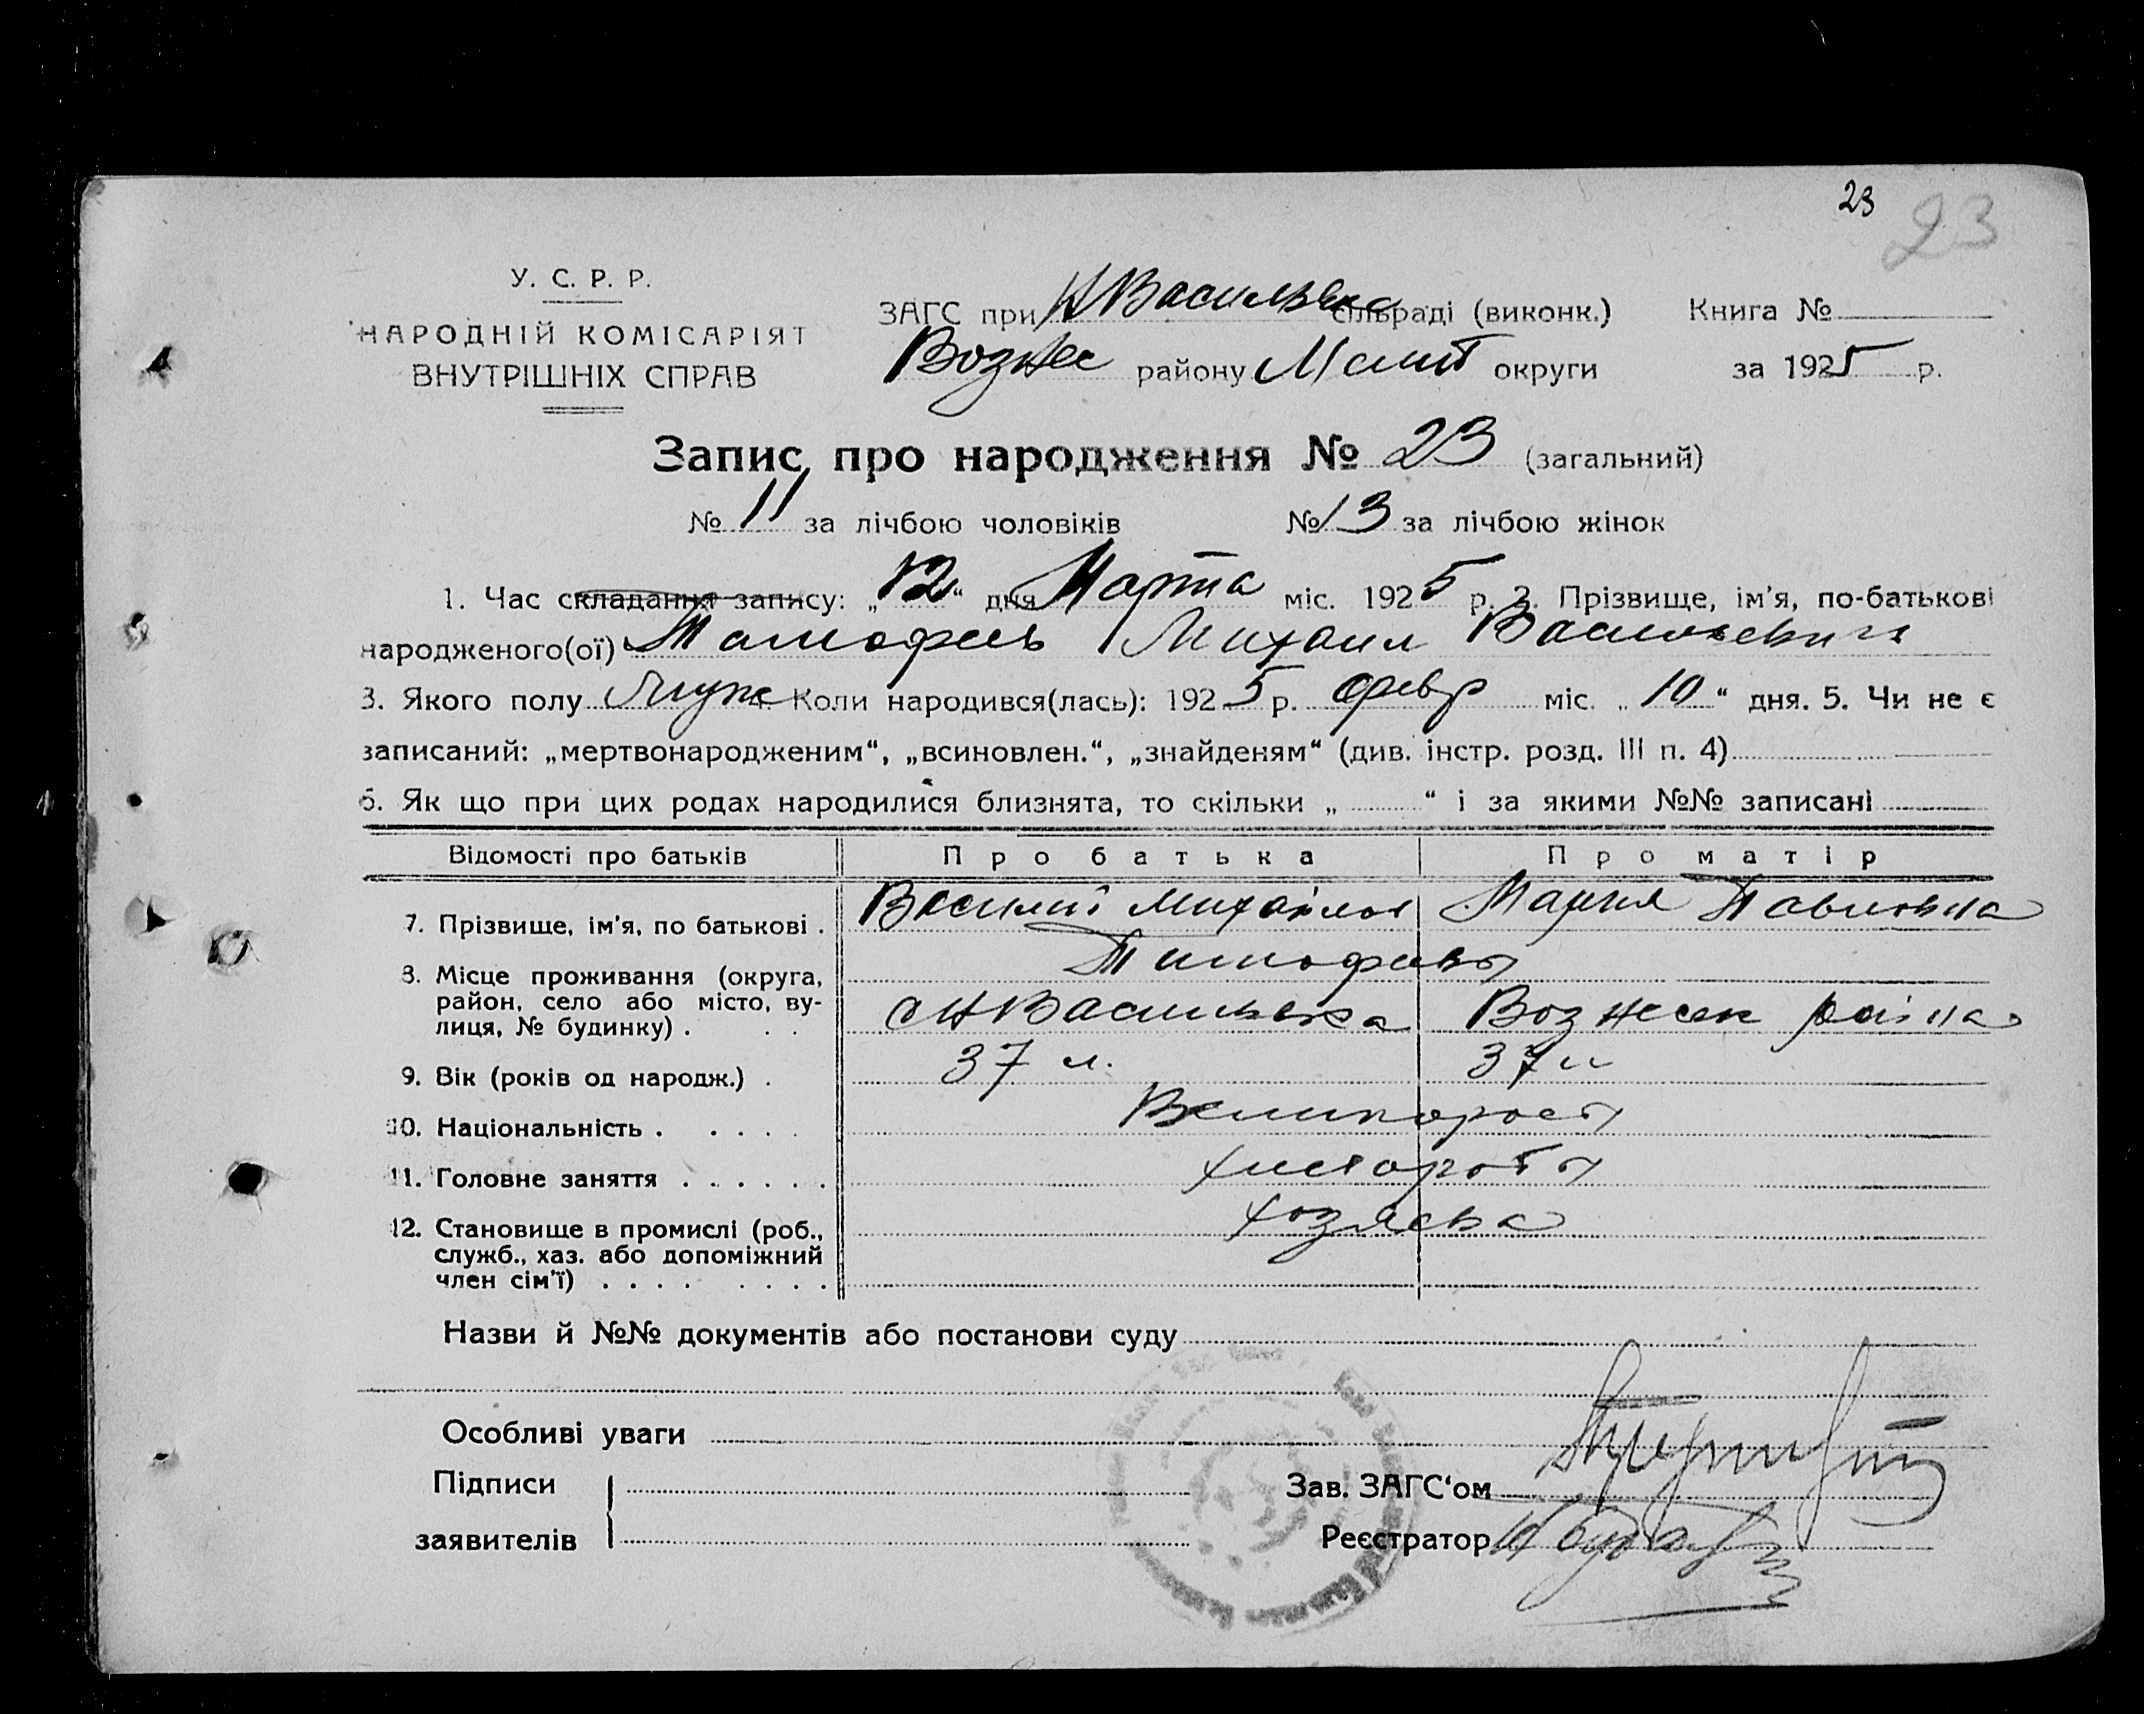 23 23
У. С. Р. Р.
НАРОДНІЙ КОМІСАРІЯТ
ВНУТРІШНІХ СПРАВ
ЗАГС при Н Васильевка сільраді (виконк.) Книга №
Вознес району Мелит округи за 1925 р.
Запис про народження № 23 (загальний)
№ 11 за лічбою чоловіків № 13 за лічбою жінок
1. Час складання запису: „12“ дня Марта міс. 1925 р. 2. Прізвище, ім'я, по-батькові
народженого(ої) Михаил Васильевич
3. Якого полу Муж 4. Коли народився(лась): 1925 р. февр міс. „10“ дня. 5. Чи не є
записаний: „мертвонародженим“, „всиновлен.“, „знайденям“ (див. інстр. розд. III п. 4)
6. Як що при цих родах народилися близнята, то скільки „ “ і за якими №№ записані
Відомості про батьків Про батька Про матір
7. Прізвище, ім'я, по батькові . Василий Михайлов Мария Павловна
Тимофеевы
8. Місце проживання (округа,
район, село або місто, ву-
лиця, № будинку) . . . с Н Васильевка Вознесен района
9. Вік (років од народж.) . 37 л. 37 л
10. Національність . . . . . Великоросы
11. Головне заняття . . . . . . хлеборобы
12. Становище в промислі (роб.,
служб., хаз. або допоміжний
член сім'ї) . . . . . . . . хозяева
Назви й №№ документів або постанови суду
Особливі уваги
Підписи
заявителів
Зав. ЗАГС‘ом
Реєстратор